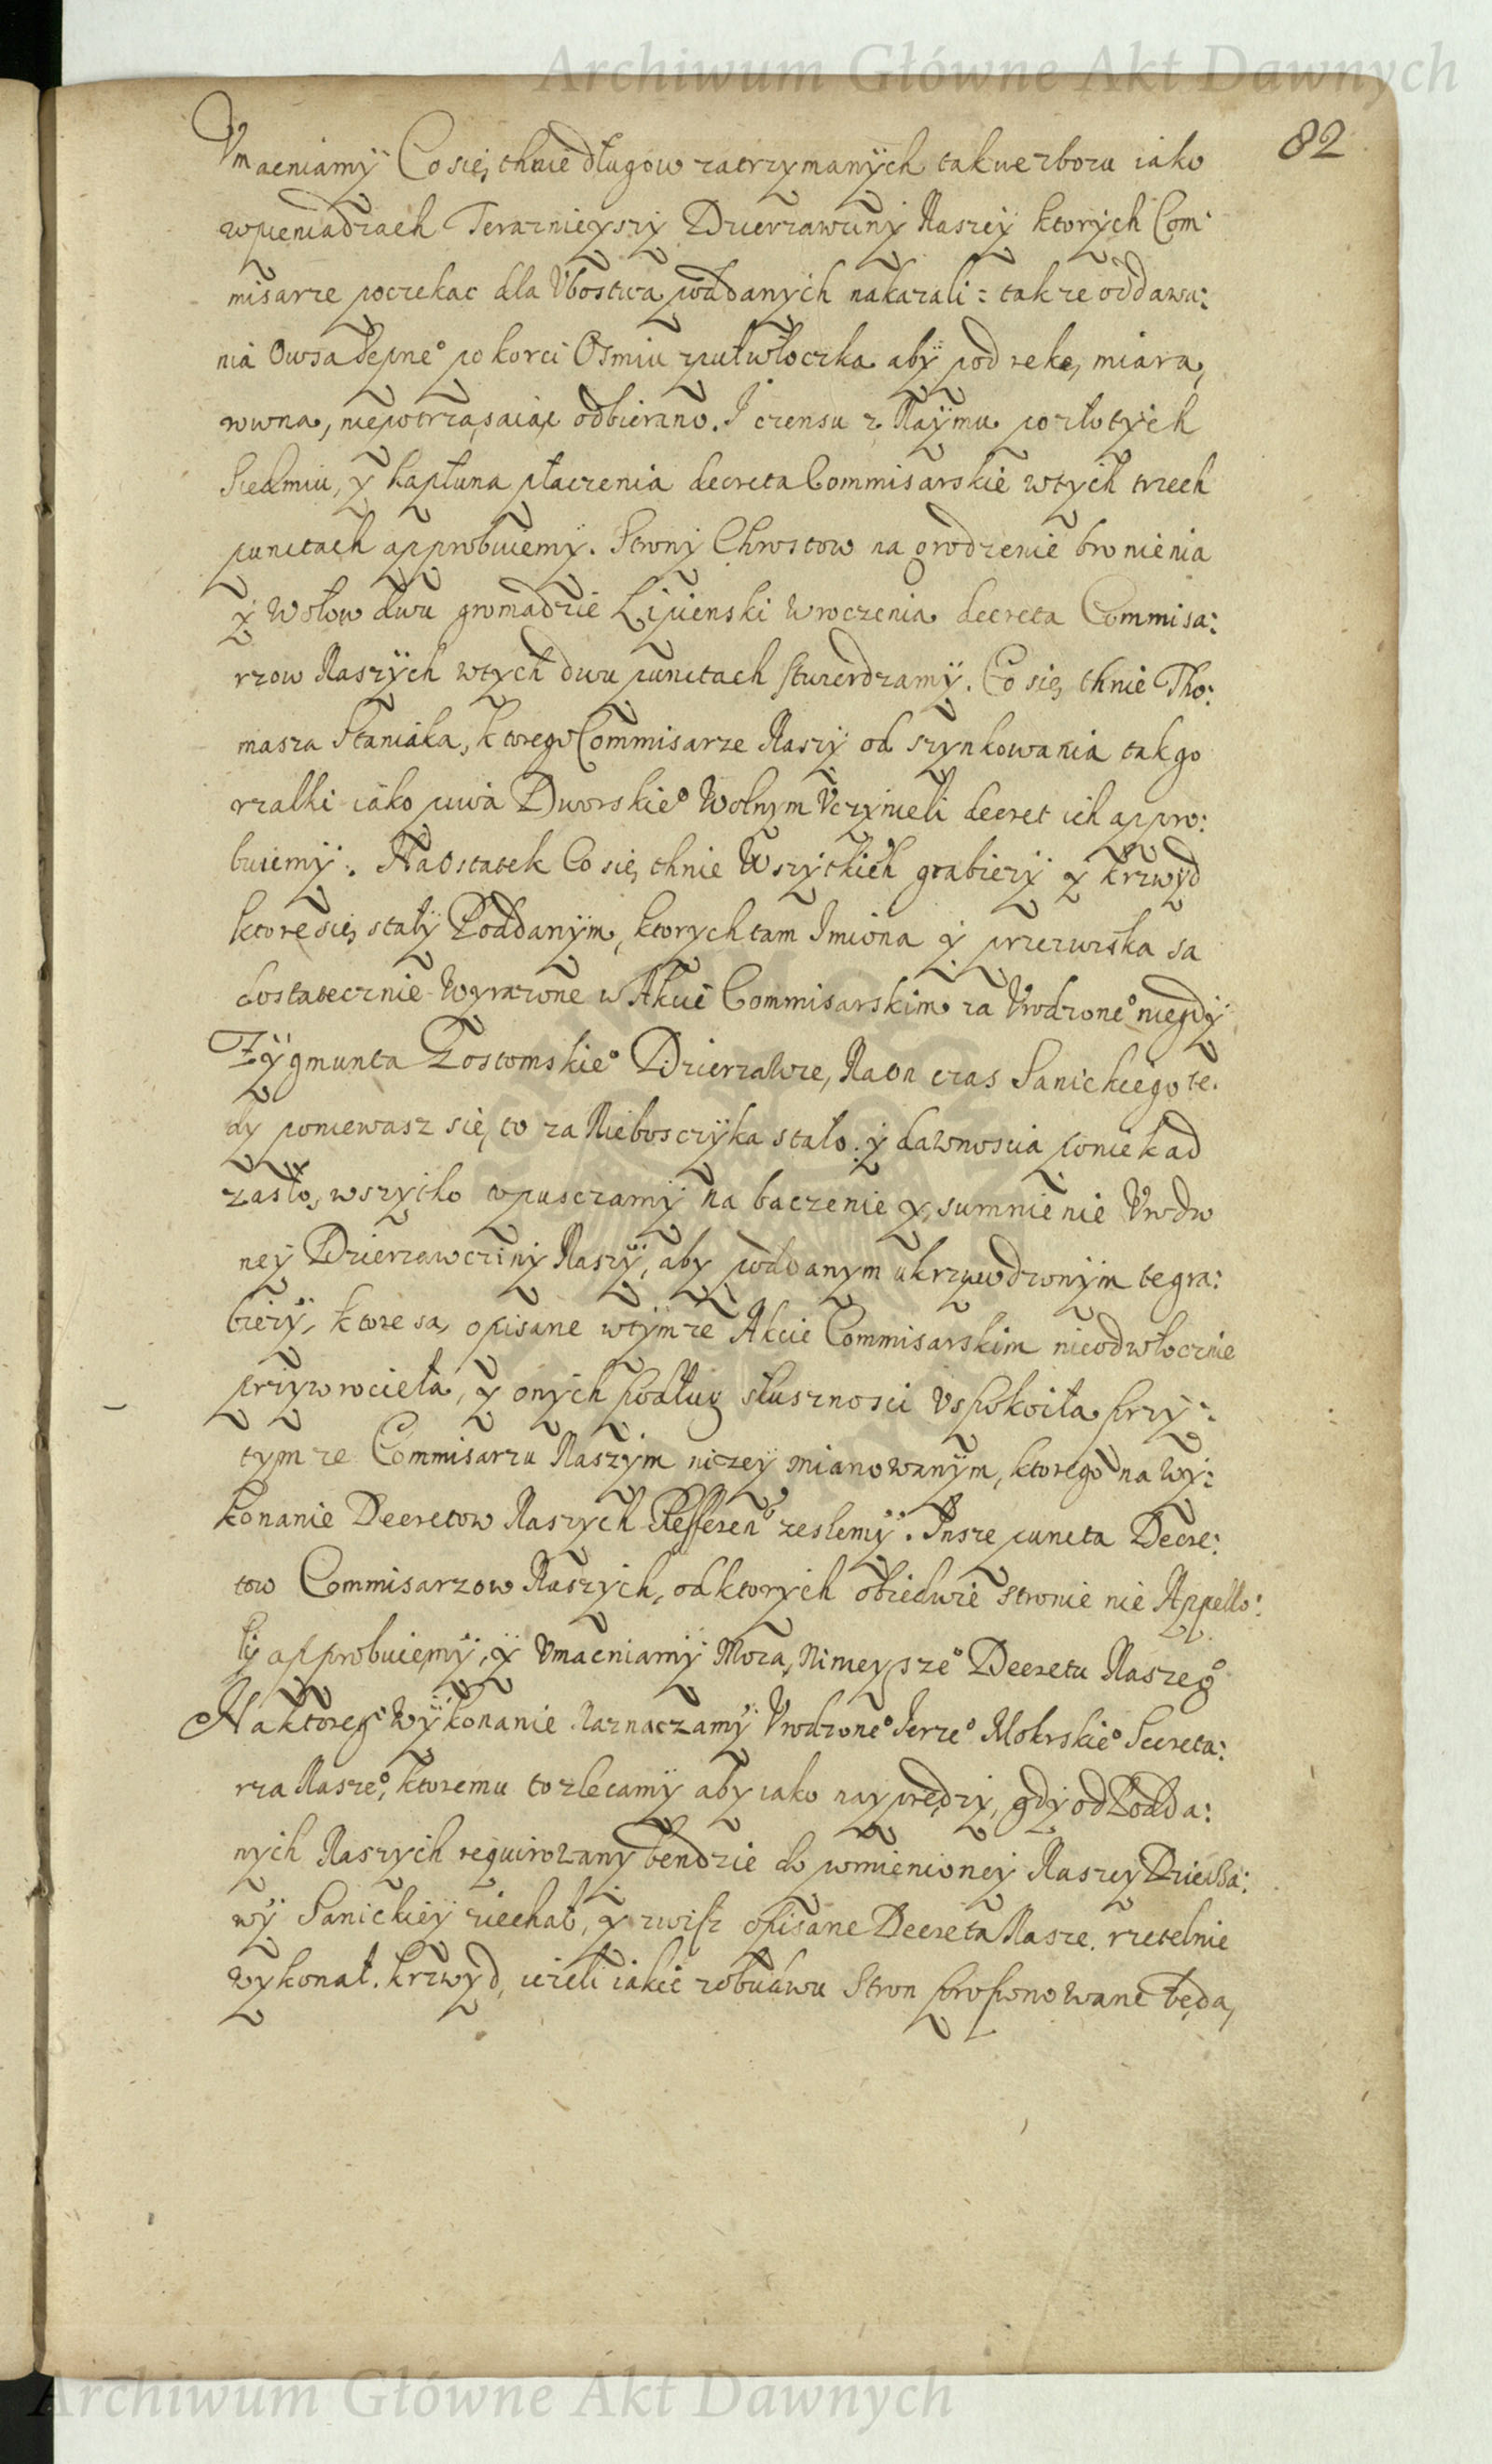 Archiwum Główne Akt Dawnych
82
Vmacniamÿ Co się thnie długow zatrzymanÿch tak we zbozu iako
w pieniadzach Teraznieyszÿ Dzierzawcinÿ Naszeÿ ktorÿch Com:
misarze poczekac dla Vbostwa poddanÿch nakazali: takze oddawa:
nia Owsa sepne° po korci Osmiu z pułwłoczka abÿ pod reke, miara,
rowna, niepotrząsaiąc odbierano. I czensu z Naÿmu po złotÿch
Siedmiu, y kapłuna płaczenia decreta Commisarskie w tÿch trzech
punctach approbuiemÿ. Stronÿ Chrostow na grodzenie bronienia
ÿ Wołow dwu gromadzie Lipienski wroczenia decreta Commisa:
rzow Naszÿch w tÿch dwu punctach stwierdzamÿ. Co się thnie Tho:
masza Staniaka, ktorego Commisarze Naszÿ od szynkowania tak go
rzalki iako piwa Dworskie° Wolnym Vczynieli decret ich appro:
buiemÿ. Na Ostatek Co się thnie Wszÿtkich grabiezÿ y krzwÿd
ktore się stałÿ Poddanÿm, ktorych tam Imiona ÿ przezwiska sa
dostatecznie Wyrazone w Akcie Commisarskim za Vrodzone° niegdÿ
Zÿgmunta Zostomskie° Dzierzawce, Na on czas Sanickiego te:
dy poniewasz się to za Nieboscÿka stało: ÿ dawnoscia poniekad
zasło, wszÿtko wpusczamÿ na baczenie y sumnienie Vrodo
neÿ Dzierzawczinÿ Naszÿ, aby poddanym ukrzywdzonÿm te gra:
biezÿ, ktore sa, opisane w tÿmze Akcie Commisarskim nieodwłocznie
przywrocieła, y onÿch podług słusznosci Vspokoiła przÿ:
tymze Commisarzu Naszÿm nizeÿ mianowanÿm, ktorego na wÿ:
konanie Decretow Naszych Refferen° zeslemÿ. Insze puncta Decre:
tow Commisarzow Naszych, od ktorÿch obiedwie stronie nie Appello:
lÿ approbuiemÿ, y Vmacniamÿ Moza, Ninieÿsze° Decretu Naszeg°
Na ktoreg° Wÿkonanie Naznaczamÿ Vrodzone° Jerze° Mokrskie° Secreta:
rza Nasze°, ktoremu to zlecamÿ aby iako nayprędzÿ, gdÿ od Podda:
nych Naszych requirowany bendzie do pomienioneÿ Naszey Dzierza:
wÿ Sanickieÿ ziechał, y zwisz opisane Decreta Nasze rzetelnie
wykonał. krzwyd, iezeli iakie z obudwu Stron proponowane będa,
Archiwum Główne Akt Dawnych